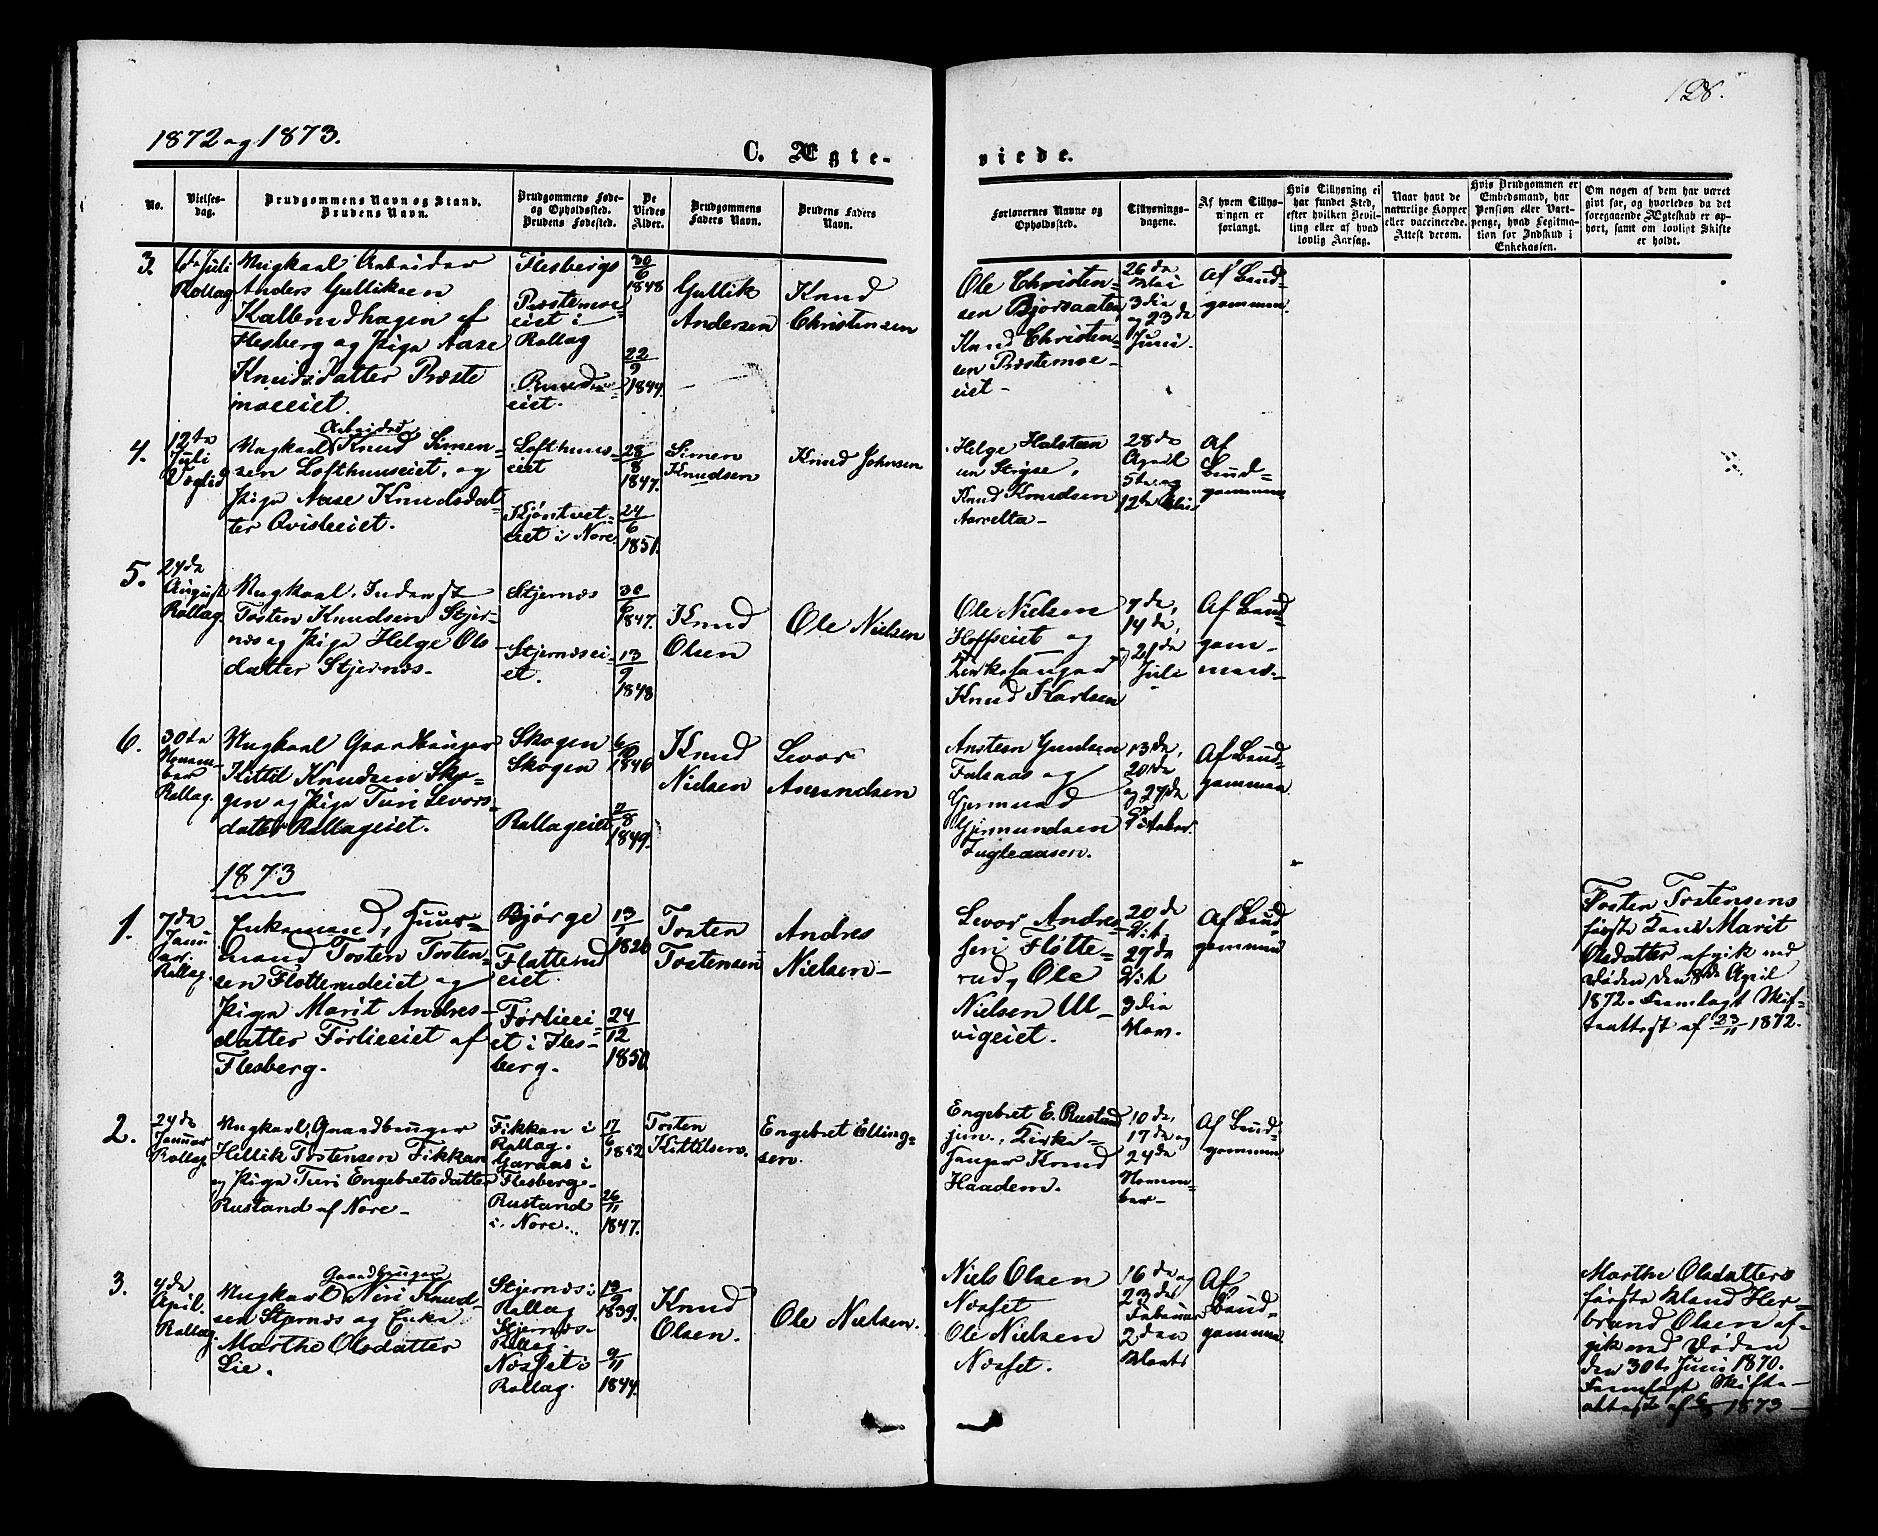 128.
1872 og 1873.
C. Ægteviede.
No.
Vielses-
dag.
Brudgommens Navn og Stand.
Brudens Navn.
Brudgommens Føde-
og Opholdssted.
Brudens Fødested.
De
Viedes
Alder.
Brudgommens
Faders Navn.
Brudens Faders
Navn.
Forlovernes Navne og
Opholdssted.
Tillysnings-
dagene.
Af hvem Tillys-
ningen er
forlangt.
Hvis Tillysning ei
har fundet Sted,
efter hvilken Bevil-
ling eller af hvad
lovlig Aarsag.
Naar havt de
naturlige Kopper
eller vaccinerede.
Attest derom.
Hvis Brudgommen er
Embedsmand, har
Pension eller Vart-
penge, hvad Legitima-
tion for Indskud i
Enkekassen.
Om nogen af dem har været
gift før, og hvorledes da det
foregaaende Ægteskab er op-
hørt, samt om lovligt Skifte
er holdt.
3.
6te Juli
Rollag
Ungkarl Arbeider
Anders Gulliksen
Kallerudhagen af
Flesberg og Pige Aase
Knudsdatter Præste
moeeiet.
Flesberg
Præstemoe-
eiet i
Rollag
eiet.
30/6
1848
22/9
1844.
Gullik
Andersen
Knud
Christensen
Ole Christen-
sen Bjørsaaten
Knud Christen-
sen Præstemoe-
eiet -
26de
Mai
3die
og 23de
Juni.
Af Brud-
gommen.
4.
12te
Juli
Veglid
Ungkarl Arbeider Knud Simen-
sen Lofthuuseiet, og
Pige Aase Knudsdat-
ter Qvisleeiet.
Lofthuus-
eiet
Kjøntvet-
eiet i Nore
28/8
1847.
24/6
1851.
Simen
Knudsen
Knud Johnsen
Helge Halsteen
Knud Knudsen
28de
April
5te og
12te Mai
Af
Brud-
gommen
5.
24de
August
Rollag.
Ungkarl, Inderst
Tosten Knudsen Stjer-
næs og Pige Helge Ols-
datter Stjernæs.
Stjernæs
Stjernæsei-
et.
30/6
1847.
13/9
1848
Knud
Olsen
Ole Nielsen
Ole Nielsen
Hoffseiet og
Kirkesanger
Knud Karlsen
7de,
14de,
21de
Juli
Af Brud-
gom-
men.
6.
30te
Novem-
ber
Rollag.
Ungkarl Gaardbruger
Kittil Knudsen Sko-
gen og Pige Turi Levors-
datter Rollageiet.
Skogen
Skogen
Rollageiet
6/10
1846
2/8
1849.
Knud
Nielsen
Levor
Amundsen
Anstein Gundsen
Falsaas og
Gjermund
Gjermundsen
Fugleaasen.
13de,
20de
og 27de
October.
Af Brud-
gommen.
1873
1.
7de
Janu-
ar.
Rollag.
Enkemand, Huus-
mand Tosten Tosten-
sen Fløtterudeiet og
Pige Marit Andres-
datter Førlieeiet af
Flesberg.
Bjørge
Fløtterud
eiet.
Førlieei-
et i Fles-
berg.
13/1
1820
24/12
1850
Tosten
Tostensen
Andres
Nielsen
Levor Andre-
sen Fløtte-
rud, Ole
Nielsen Ul-
vigeiet.
20de
Oct.
27de
Oct.
3die
Nov.
Af Brud-
gommen
Tosten Tostensens
første Kone Marit
Olsdatter afgik ved
Døden den 8de April
1872. Fremlagt Skif-
teattest af 23/11 1872.
2.
24de
Januar
Rollag.
Ungkarl, Gaardbruger
Hellik Tostensen Fikkan
og Pige Turi Engebretsdatter
Rustand af Nore
Fikkan i
Rollag.
Garaas i
Flesberg.
Rustand
i Nore.
17/6
1852
26/11
1847.
Tosten
Kittilsen.
Engebret Elling-
sen.
Engebret E. Rustand
jun., Kirke-
sanger Knud
Haadem.
10de,
17de og
24de
Novem-
ber
Af Brud-
gommen
3.
4de
April.
Rollag.
Ungkarl Gaardbruger Niri Knud-
sen Stjernæs og Enke
Marthe Olsdatter
Lie.
Stjernæs i
Rollag
Stjernæs.
Rollag.
Næsset i
Rollag.
1839.
9/11
1844.
Knud
Olsen.
Ole Nielsen.
Niels Olsen
Næsset
Ole Nielsen
Næsset.
16de og
23de
Februar
2den
Marts
Af
Brud-
gommen.
Marthe Olsdatters
første Mand Her-
brand Olsen af-
gik ved Døden
den 30te Juni 1870.
Fremlagt Skifte-
attest af 1873